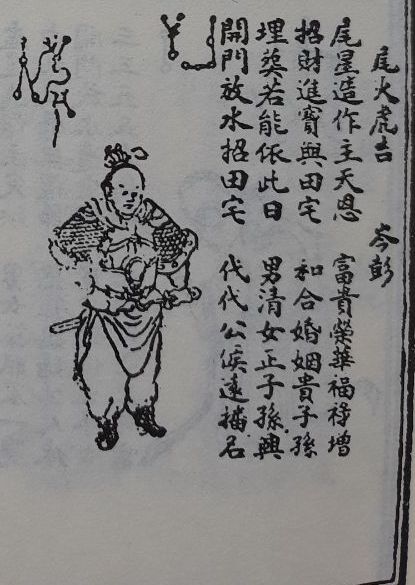 尾火虎吉　岑彭
尾星造作主天恩　富貴榮華福祿增
招財進寶興田宅　和合婚姻貴子孫
埋葬若能依此日　男清女正子孫興
開門放水招田宅　代代公侯遠播名